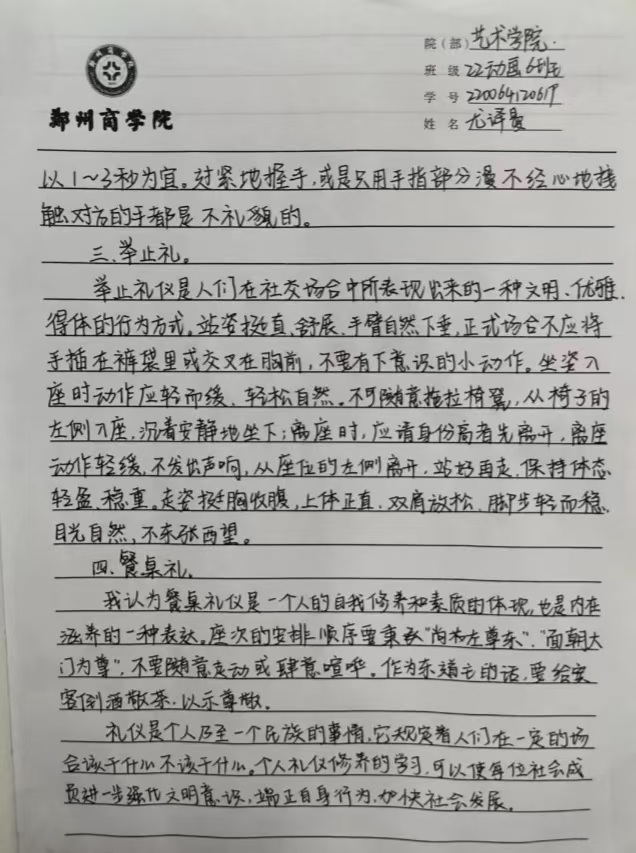 郑州商学院
院（部）艺术学院.
班 级 22动画6班
学 号 220064120619
姓 名 尤译
以1~3秒为宜。过紧地握手,或是只用手指部分漫不经心地接
触对方的手都是不礼貌的。
三、举止礼。
举止礼仪是人们在社交场合中所表现出来的一种文明、优雅、
得体的行为方式。站姿挺直、舒展、手臂自然下垂,正式场合不应将
手插在裤袋里或交叉在胸前,不要有下意识的小动作。坐姿入
座时动作应轻而缓、轻松自然。不可随意拖拉椅凳,从椅子的
左侧入座,沉着安静地坐下;离座时,应请身份高者先离开,离座
动作轻缓,不发出声响,从座位的左侧离开,站好再走,保持体态
轻盈、稳重。走姿挺胸收腹,上体正直,双肩放松,脚步轻而稳,
目光自然,不东张西望。
四、餐桌礼。
我认为餐桌礼仪是一个人的自我修养和素质的体现,也是内在
涵养的一种表达。座次的安排顺序要秉承"尚左尊东"、"面朝大
门为尊",不要随意走动或肆意喧哗。作为东道主的话,要给宾
客倒酒敬茶,以示尊敬。
礼仪是个人乃至一个民族的事情,它规定着人们在一定的场
合该干什么不该干什么。个人礼仪修养的学习,可以使每位社会成
员进一步强化文明意识,端正自身行为,加快社会发展。